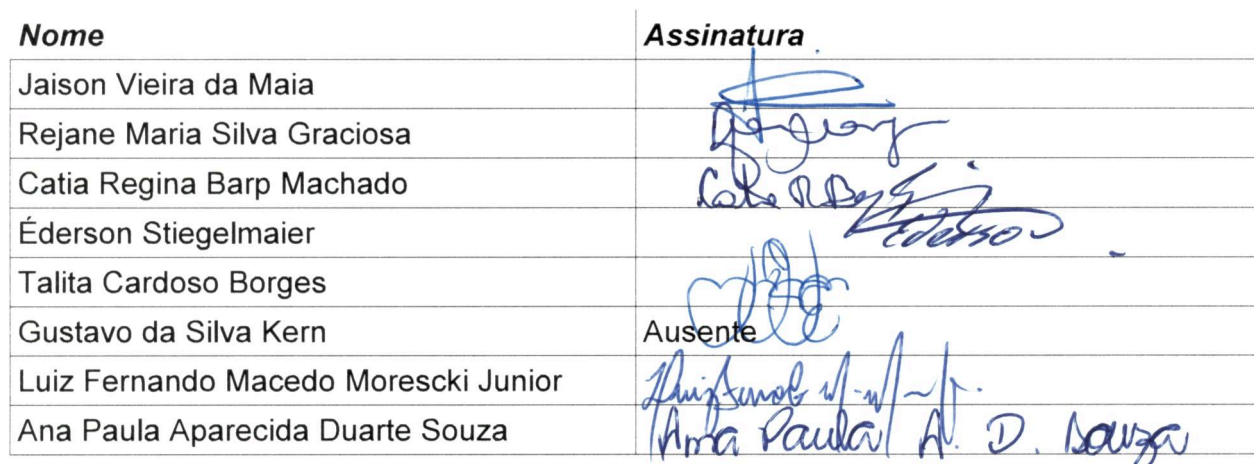 Nome Assinatura
Jaison Vieira da Maia
Rejane Maria Silva Graciosa
Catia Regina Barp Machado
Éderson Stiegelmaier Ederson
Talita Cardoso Borges
Gustavo da Silva Kern Ausente
Luiz Fernando Macedo Morescki Junior
Ana Paula Aparecida Duarte Souza Ana Paula A. D. Souza